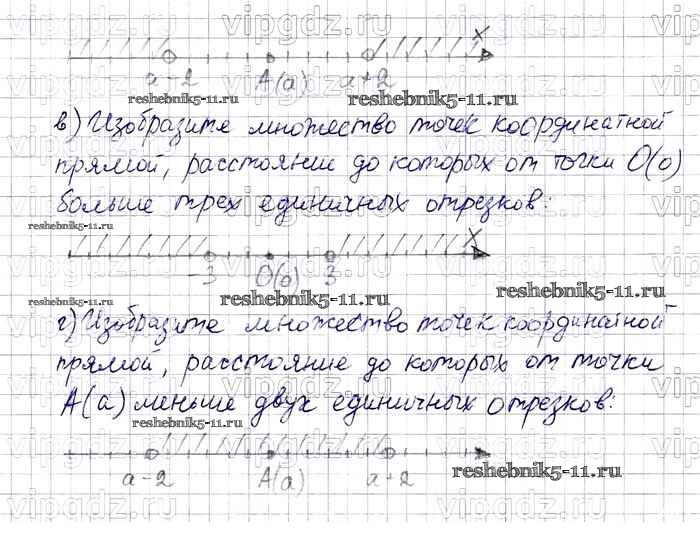 vipgdz.ru vipgdz.ru vipgdz.ru
x
a-2 A(a) a+2
reshebnik5-11.ru reshebnik5-11.ru
в) Изобразите множество точек координатной
прямой, расстояние до которых от точки O(o)
больше трех единичных отрезков:
reshebnik5-11.ru
x
-3 O(o) 3
reshebnik5-11.ru
reshebnik5-11.ru reshebnik5-11.ru
г) Изобразите множество точек координатной
прямой, расстояние до которых от точки
A(a) меньше двух единичных отрезков:
reshebnik5-11.ru
a-2 A(a) a+2
reshebnik5-11.ru
vipgdz.ru vipgdz.ru vipgdz.ru